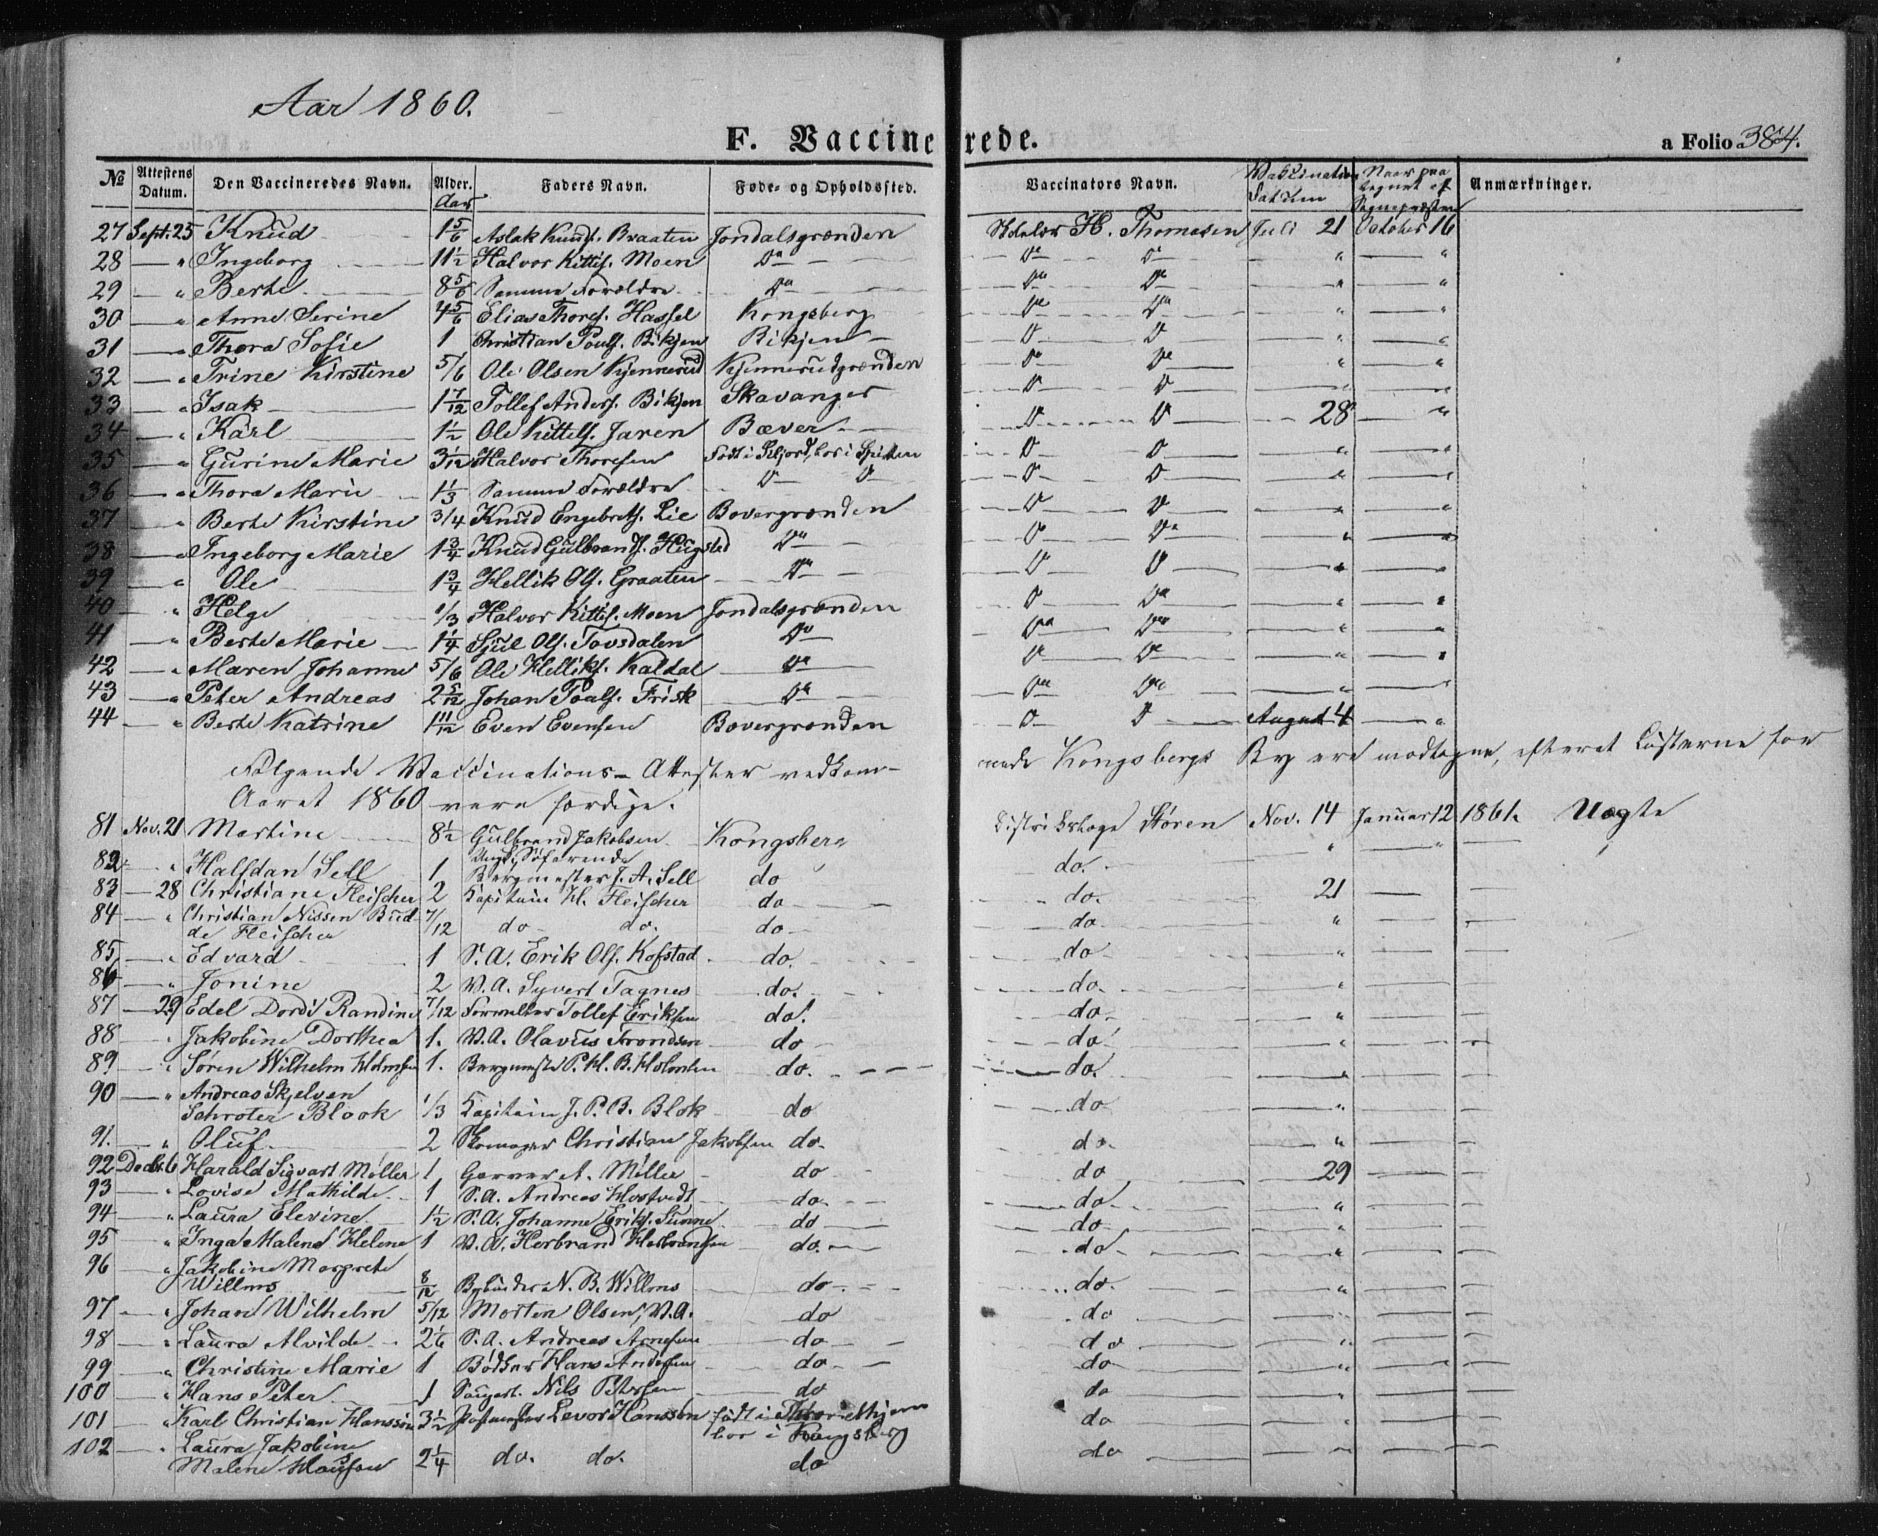 Aar 1860.
F. Vaccinerede. a Folio 384.
№ Attestens Datum. Den Vaccineredes Navn. Alder. Aar Faders Navn. Føde- og Opholdssted. Vaccinators Navn. Vaccinations Datum Naar paategnet af Sognepræsten Anmærkninger.
27 Sept. 25 Knud 1 5/6 Aslak Knuds. Braaten Jondalsgrænden H. Thomasen Juli 21 October 16
28 — " Ingeborg 11 1/2 Halvor Kittils. Moen Do Do Do " "
29 — " Berte 8 5/6 Samme Forældre Do Do Do " "
30 — " Anne Serine 4 5/6 Elias Thores. Hassel Kongsberg Do Do " "
31 — " Thora Sofie 1 Christian Pouls. Bikjen Bikjen D D " "
32 — " Trine Kirstine 5/6 Ole Olsen Kjennerud Kjennerudgrænden Do Do " "
33 — " Isak 1 7/12 Tollef Anders. Bikjen Skavanger D D " "
34 — " Karl 1 1/2 Ole Kittels. Jaren Bæver D D 28 "
35 — " Gurine Marie 3 1/12 Halvor Thoresen Født i bor i D D " "
36 — " Thora Marie 1 1/3 Samme Forældre D D D D " "
37 — " Berte Kirstine 3/4 Knud Engebrets. Lie Bovergrænden D D " "
38 — " Ingeborg Marie 1 3/4 Knud Gulbrands. Hugsted Do D Do " "
39 — " Ole 1 3/4 Hellik Ols. Graaten Do D D " "
40 — " Helge 1/3 Halvor Kittils. Moen Jondalsgrænden D Do " "
41 — " Berte Marie 1 1/4 Sjul Ols. Tovsdalen Do Do Do " "
42 — " Maren Johanne 5/6 Ole Helliks. Kaldal Do D Do " "
43 — " Peter Andreas 2 5/12 Johan Poals. Frisk Do Do Do " "
44 — " Berte Katrine 1 11/12 Even Evensen Bovergrænden D D August 4 "
Følgende Vaccinations-Attester vedkommende Kongsbergs By ere modtagne, efterat Listerne for
Aaret 1860 vare færdige.
81 Nov. 21 Martine 8 1/2 Gulbrand Jakobsen Kongsberg Distriktslæge Støren Nov. 14 Januar 12 1861. Uægte
Søfarende
82 " Halfdan Sell 1 Bergmester J. A. Sell do do. " "
83 — 28 Christiane Fleischer 2 Kapitain H. Fleischer do do. 21
84 — " Christian Nissen Bud- 7/12 do do. do do "
de Fleischer
85 — " Edvard 1 S. A. Erik Ols. Kofstad do. do "
86 — " Jonine 2 V. A. Syvert Tagnes do. do "
87 — 29 Edel Dordi Randine 7/12 Forvalter Tollef Eriksen do. do "
88 " Jakobine Dorthea 1. V. A. Olavus Trondsen do do "
89 — " Søren Wilhelm Holmsen 1. Bergmester P. H. B. Holmsen do. do. "
90 — " Andreas Skjelven
Schroter Block 1/3 Kapitain J. P. B. Blok do do "
91. — " Oluf 2 Skomager Christian Jakobsen do. do. "
92 Decbr. 6 Harald Sigvart Møller 1 Garver A. Miller do do 29
93 — " Lovise Mathilde 1 S. A. Andreas Hostvedt do. do "
94 — " Laura Elevine 1 1/2 S. A. Johanne Eriks. do do "
95 — " Inga Malene Helene 1 V. A. Herbrand Herbrandsen do. do "
96 — " Jakobine Margrete
Willms 8/12 N. B. Willms do do. "
97 — " Johan Wilhelm 5/12 Morten Olsen, V. A. do do "
98 — " Laura Alvilde 2 1/6 S. A. Andreas Arnesen do do "
99 — " Christine Marie 1 Bødker Hans Andersen do do "
100 — " Hans Peter 1 Nils Petersen do do "
101 — " Karl Christian Hanssen 3 1/2 Postmester Levor Hanssen født i Throndhjem do "
bor i Kongsberg
102 — " Laura Jakobine
Malene Hanssen 2 1/4 do. do. do do "